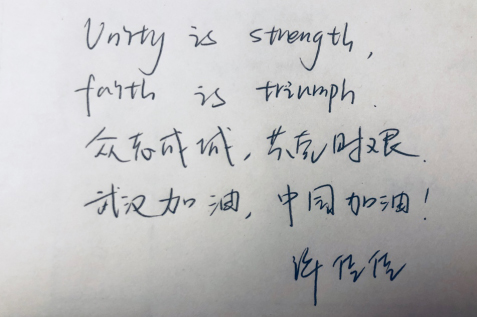 Unity is strength,
faith is triumph.
众志成城，共克时艰.
武汉加油，中国加油！
许佳佳